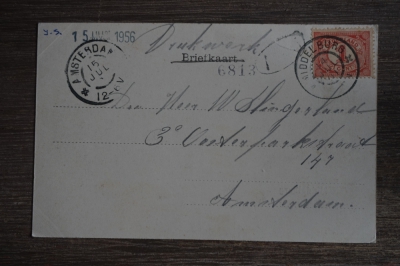 J.S.
15 1956
Drukwerk
Briefkaart
6813
AMSTERDAM
15 JUL
12-
MIDDELBURG
Den Heer W Slingerland
3e Oosterparkstraat
147
Amsterdam.